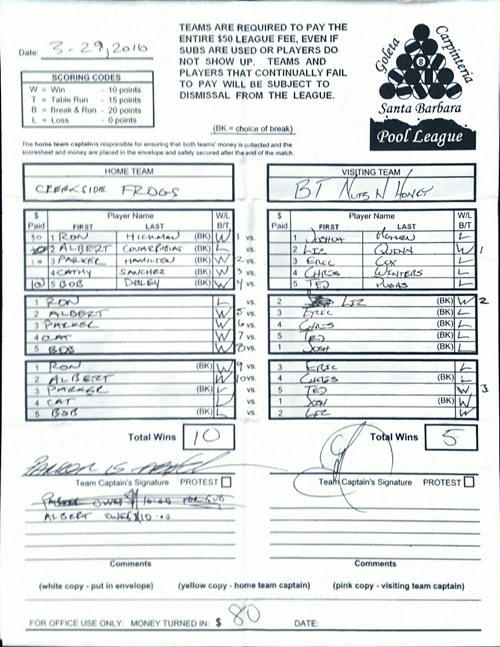 Date: 3-29,2016
TEAMS ARE REQUIRED TO PAY THE
ENTIRE $50 LEAGUE FEE, EVEN IF
SUBS ARE USED OR PLAYERS DO
NOT SHOW UP. TEAMS AND
PLAYERS THAT CONTINUALLY FAIL
TO PAY WILL BE SUBJECT TO
DISMISSAL FROM THE LEAGUE.
Goleta Carpinteria
Santa Barbara
Pool League
SCORING CODES
W = Win - 10 points
T = Table Run - 15 points
B = Break & Run - 20 points
L = Loss - 0 points
(BK = choice of break)
The home team captain is responsible for ensuring that both teams' money is collected and the
scoresheet and money are placed in the envelope and safely secured after the end of the match.
HOME TEAM VISITING TEAM
CREEKSIDE FROGS BT NUTS N HONEY
$ Paid Player Name FIRST LAST W/L B/T
$ Paid Player Name FIRST LAST W/L B/T
1 RON HICKMAN (BK) W 1 vs. 1 JOSHUA L
2 ALBERT (BK) L vs. 2 LIZ QUINN W 1
10 3 PARKER HAMILTON (BK) W 2 vs. 3 ERIC COX L
4 CATHY SANCHEZ (BK) W 3 vs. 4 CHRIS WINTERS L
10 5 BOB (BK) W 4 vs. 5 TED L
1 RON L vs. 2 LIZ (BK) W 2
2 ALBERT W 5 vs. 3 ERIC (BK) L
3 PARKER W 6 vs. 4 CHRIS (BK) L
4 CAT W 7 vs. 5 TED (BK) L
5 BOB W 8 vs. 1 JOSH (BK) L
1 RON (BK) W 9 vs. 3 ERIC L
2 ALBERT W 10 vs. 4 CHRIS (BK) L
3 PARKER (BK) L vs. 5 TED W 3
4 CAT L vs. 1 JOSH (BK) W
5 BOB (BK) L vs. 2 LIZ W
Total Wins 10 Total Wins 5
Team Captain's Signature PROTEST Team Captain's Signature PROTEST
ALBERT OWES $10.00
Comments Comments
(white copy - put in envelope) (yellow copy - home team captain) (pink copy - visiting team captain)
FOR OFFICE USE ONLY: MONEY TURNED IN: $ 80 DATE: